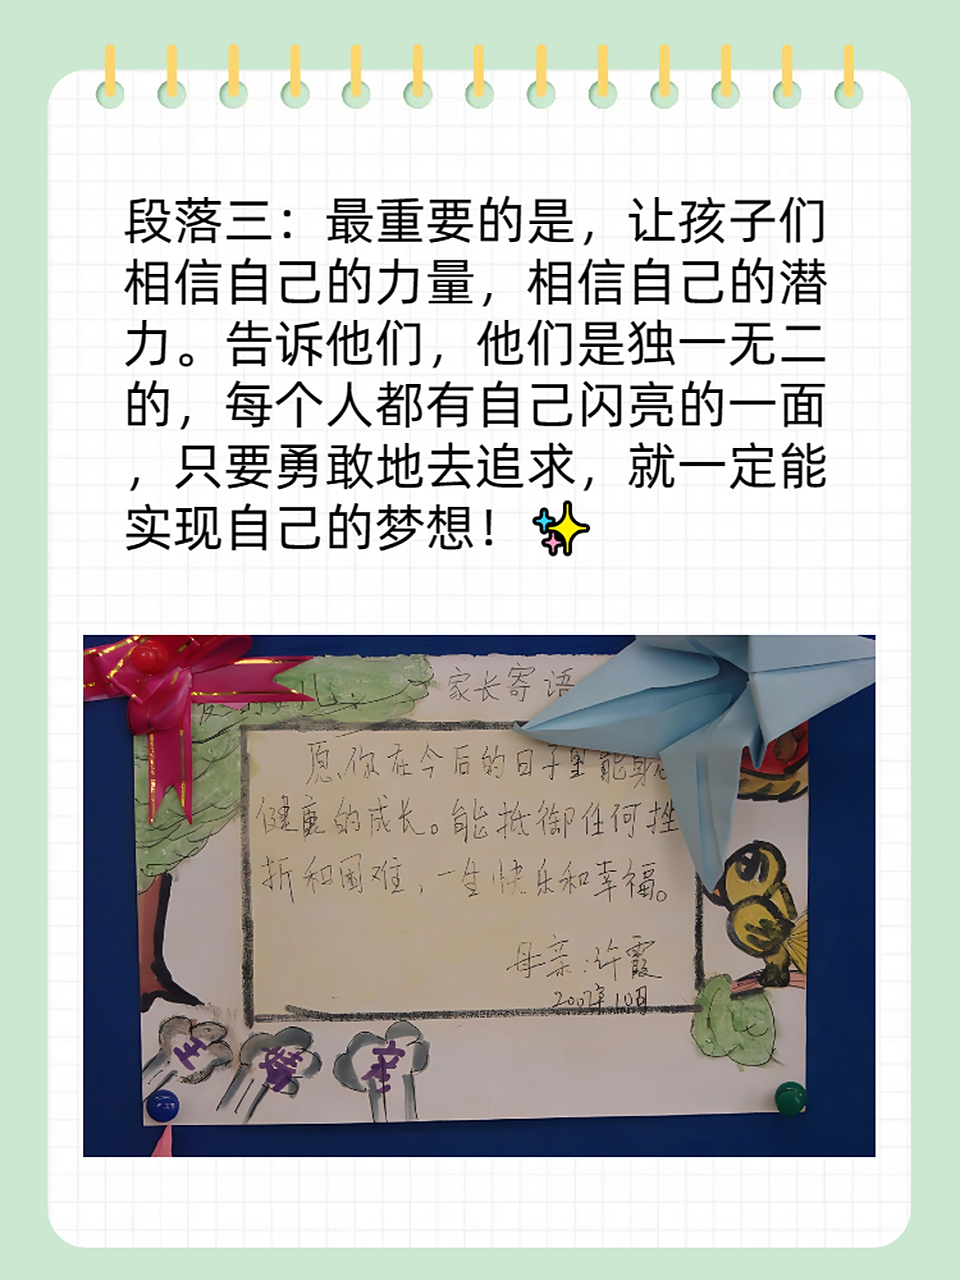 段落三：最重要的是，让孩子们
相信自己的力量，相信自己的潜
力。告诉他们，他们是独一无二
的，每个人都有自己闪亮的一面
，只要勇敢地去追求，就一定能
实现自己的梦想！✨
家长寄语
愿你在今后的日子里能身
健康的成长。能抵御任何挫
折和困难，一生快乐和幸福。
母亲：许霞
2007年10月
王
彦